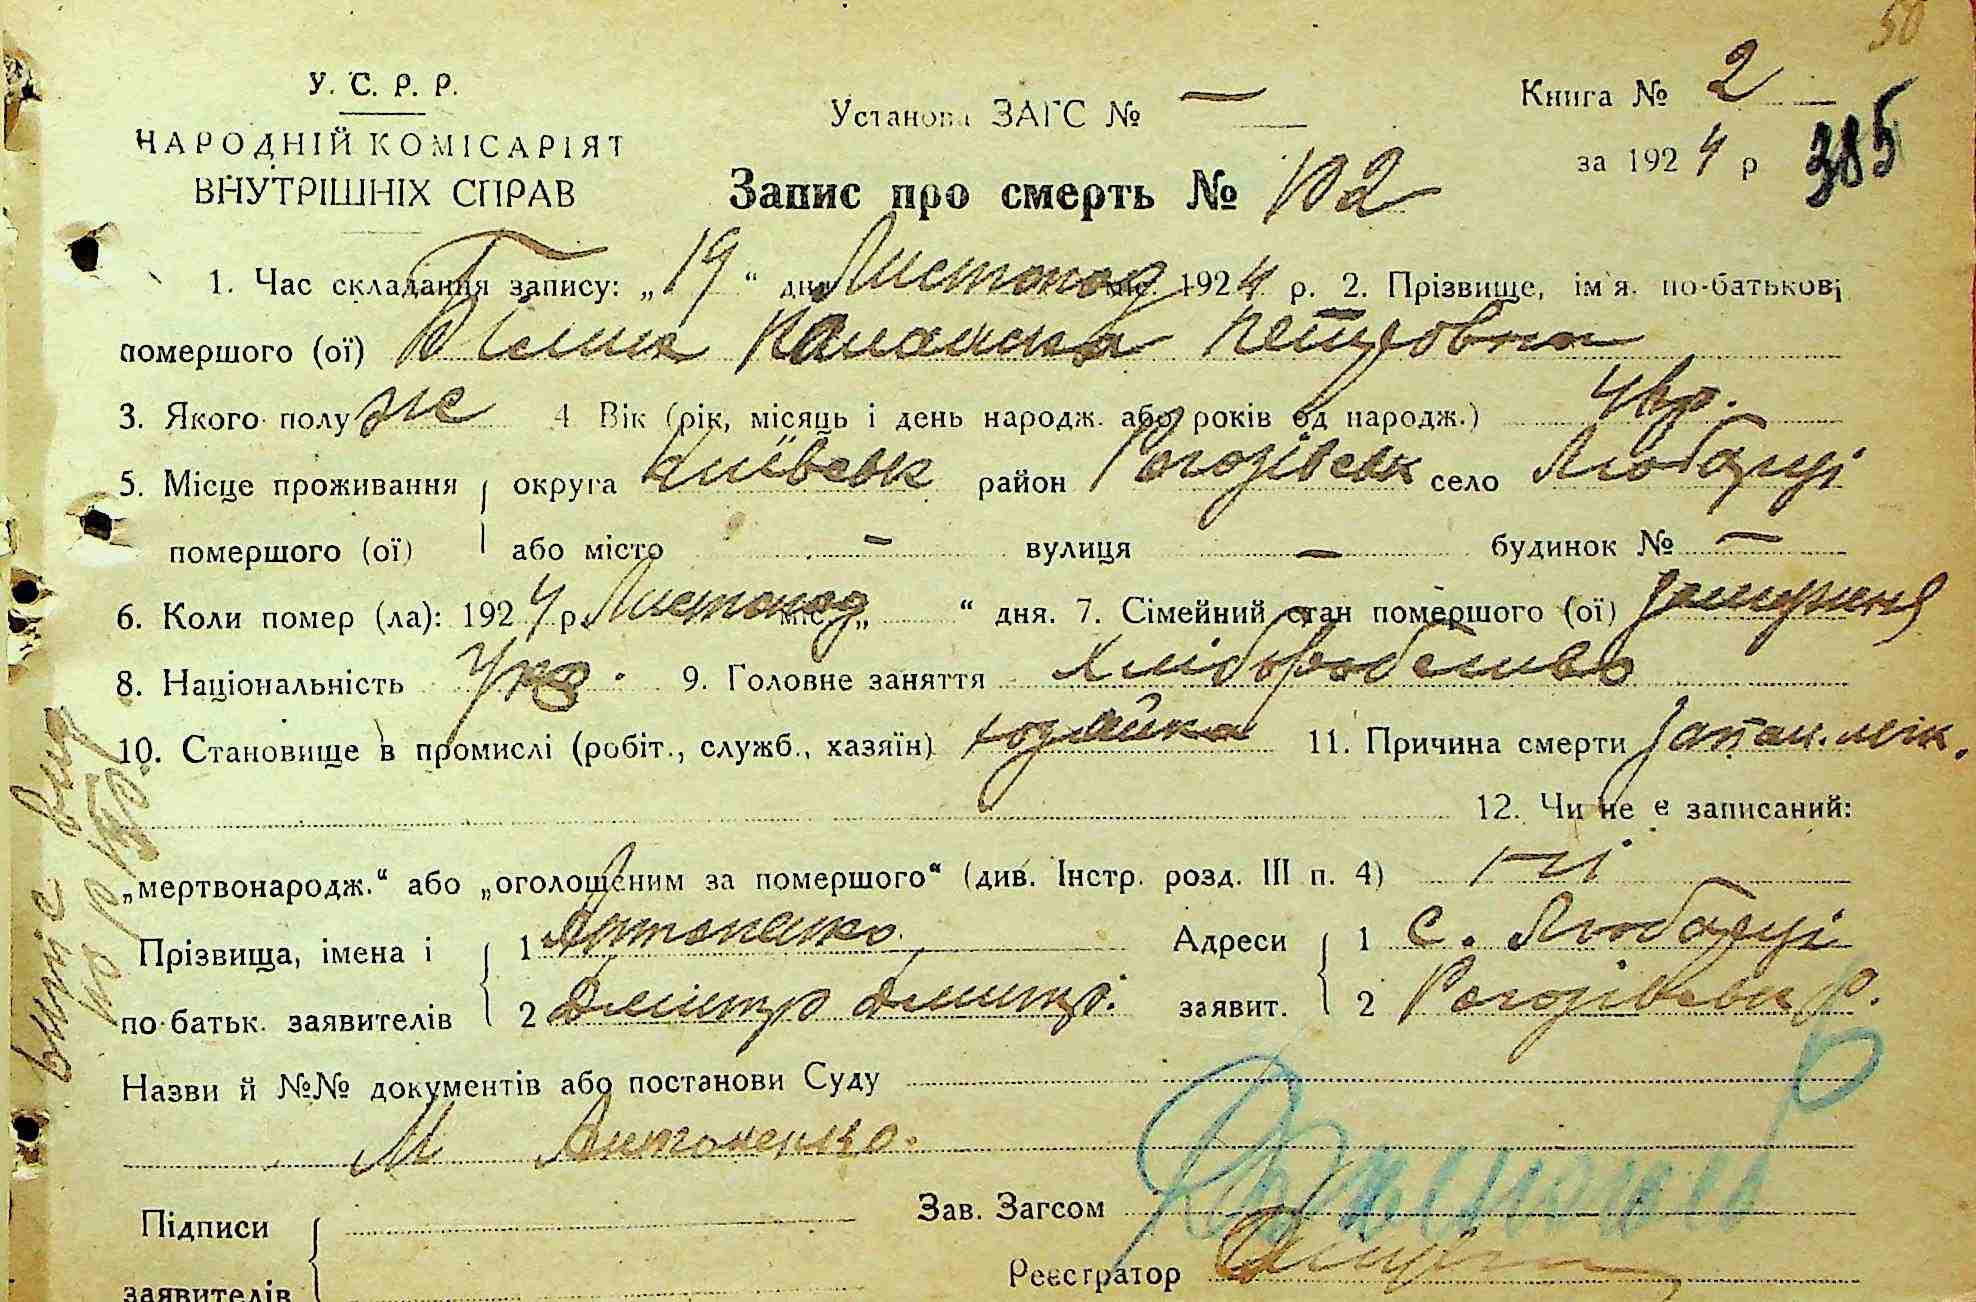 50
У. С. Р. Р.
НАРОДНІЙ КОМІСАРІЯТ
ВНУТРІШНІХ СПРАВ
Установа ЗАГС № —
Книга № 2
за 1924 р
385
Запис про смерть № 102
1. Час складання запису: „19“ дня Листопад міс. 1924 р. 2. Прізвище, ім'я. по-батькові
помершого (ої) Петровна
3. Якого полу же 4 Вік (рік, місяць і день народж. або років од народж.)
5. Місце проживання округа Київськ район Рогозівськ село Любарці
помершого (ої) або місто — вулиця — будинок № —
6. Коли помер (ла): 1924 р. Листопад міс. „ “ дня. 7. Сімейний стан помершого (ої) замужня
8. Національність Укр. 9. Головне заняття хліборобство
10. Становище в промислі (робіт., служб., хазяїн) хозяйка 11. Причина смерти запал. легк.
12. Чи не є записаний:
„мертвонародж.“ або „оголошеним за помершого“ (див. Інстр. розд. III п. 4) ні
Прізвища, імена і 1 Антоненко Адреси 1 с. Любарці
по-батьк. заявителів 2 Дмитр Дмитр. заявит. 2 Рогозівськ р.
Назви й №№ документів або постанови Суду
М Антоненко
Підписи
заявителів
Зав. Загсом
Реєстратор